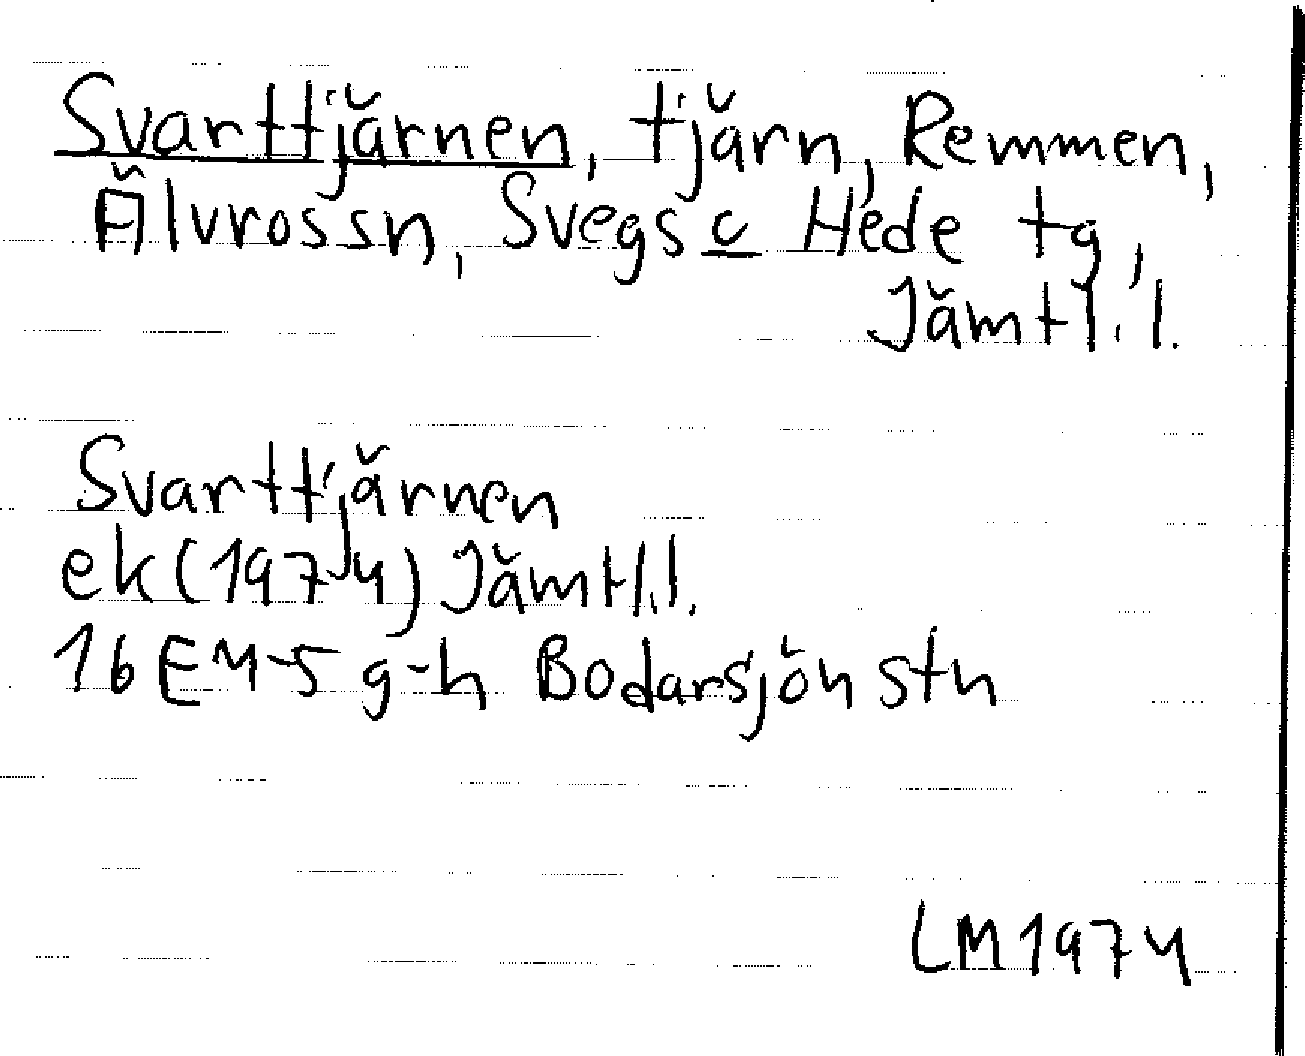 Svarttjärnen, tjärn, Remmen,
Älvrossn, Svegs c Hede tg,
Jämtl. l.
Svarttjärnen
ek (1974) Jämtl. l.
16 E 4-5 g-h Bodarsjön stn
LM 1974